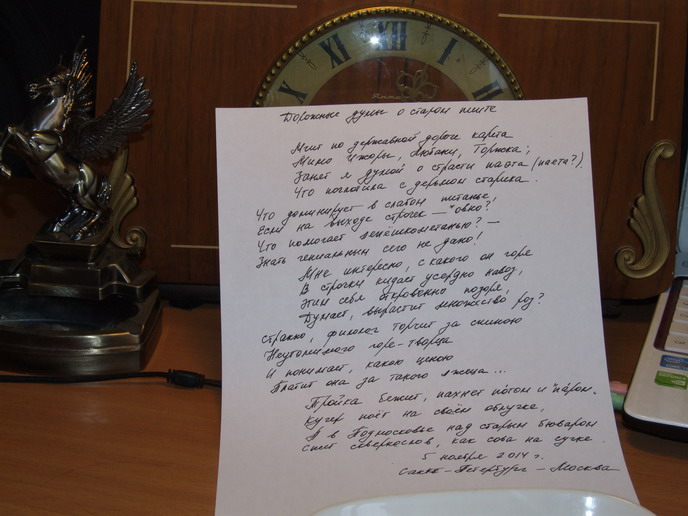 XI XII I
Дорожные думы о старом пиите
Мчит по державной дороге карета
Мимо Ижоры, Любани, Торжка;
Занят я думой о страсти паэта (паета?)
Что поглотила с дерьмом старика.
Что доминирует в слабом питанье,
Если на выходе строчек — "овно?",
Что помогает денёшкометанью? —
Знать гениальным сего не дано!
Мне интересно, с какого он горе
В строчки кидает усердно навоз,
Этим себя откровенно позоря,
Думает, вырастит множество роз?
Странно, филолог торчит за спиною
Неутолимого горе-творца
И понимает, какою ценою
Платит она за такого лжеца...
Тройка бежит, пахнет потом и "паром",
Кучер поёт на своём облучке,
А в Подмосковье над старым бюваром
Спит сквернослов, как сова на сучке.
5 ноября 2014 г.
Санкт-Петербург - Москва